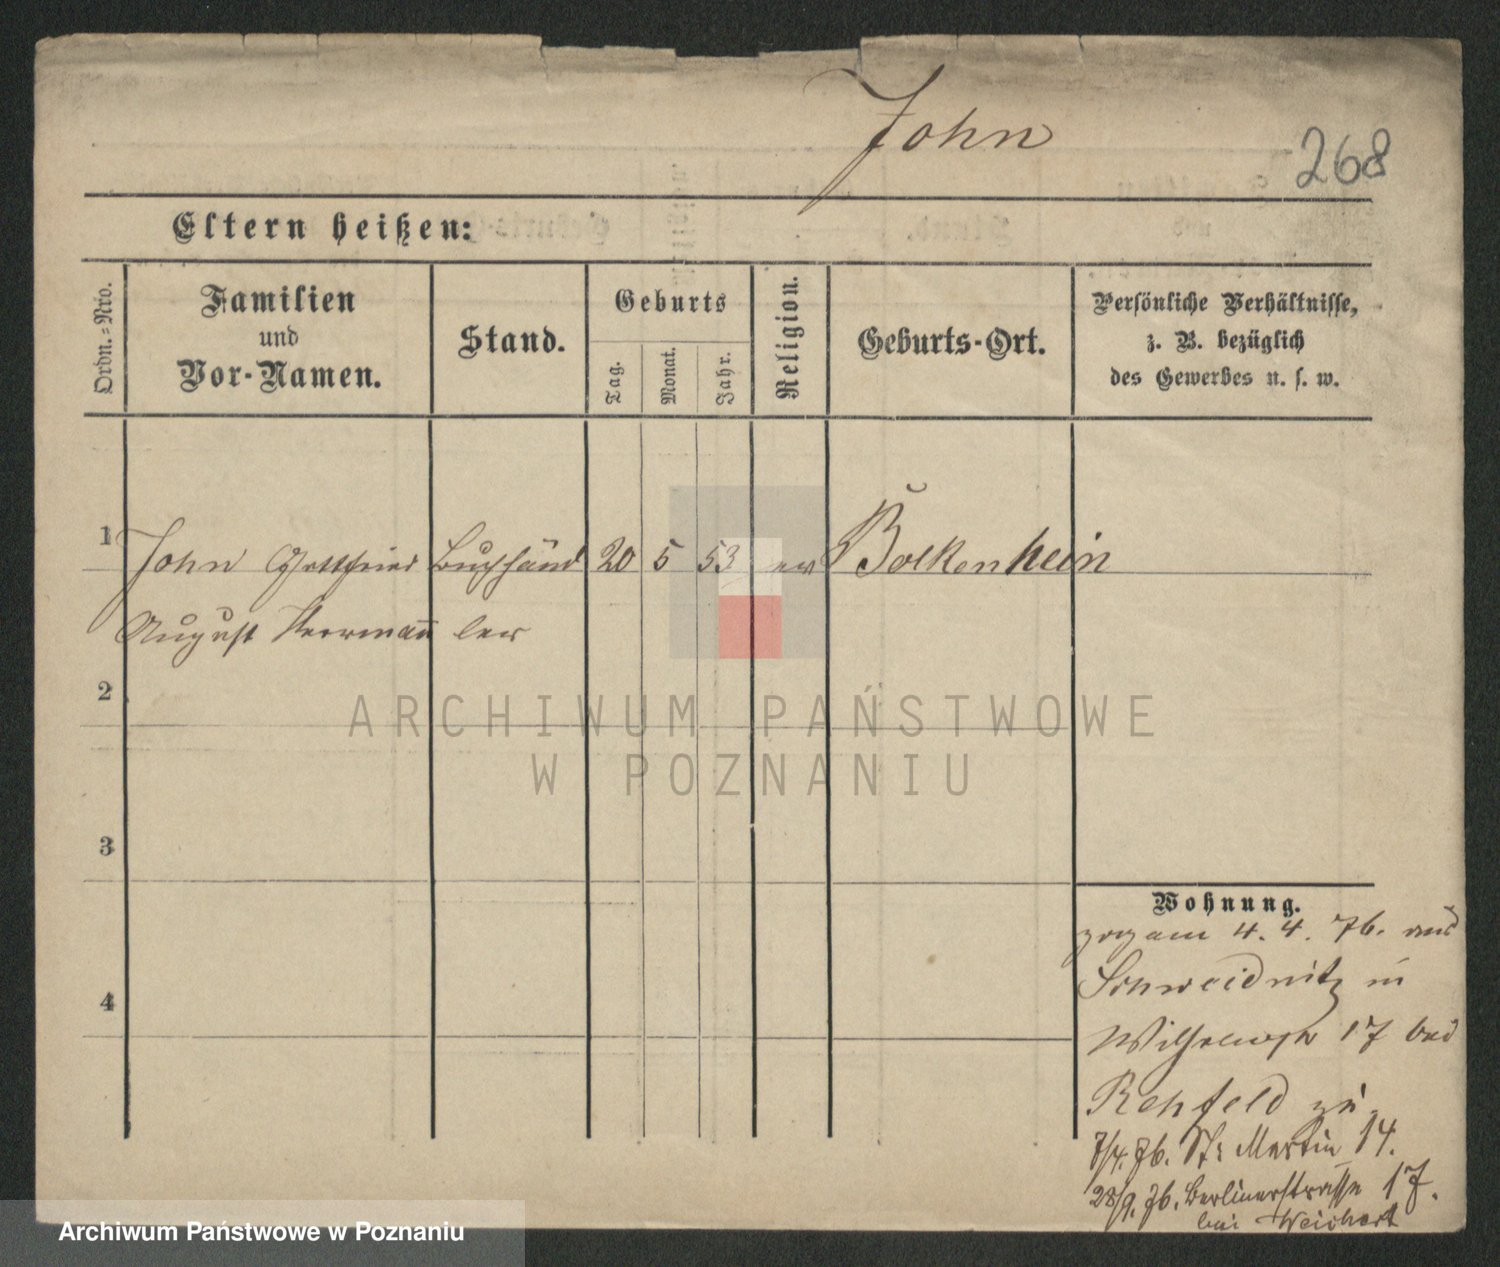 John
268
Eltern heißen:
Ordn.=Nro.
Familien
und
Vor-Namen.
Stand.
Geburts
Tag.
Monat.
Jahr.
Religion.
Geburts-Ort.
Persönliche Verhältnisse,
z. B. bezüglich
des Gewerbes u. s. w.
1 John Gottfried Buchhänd 20 5 53 ev Bolkenhein
August Herrmann ler
2
3
4
ARCHIWUM PAŃSTWOWE
W POZNANIU
Wohnung.
zog am 4. 4. 76. aus
Schweidnitz in
Wilhelmstr 17 bei
Rehfeld zu
7/4. 76. St. Martin 14.
28/9. 76. Berlinerstrasse 17.
bei Weichert
Archiwum Państwowe w Poznaniu